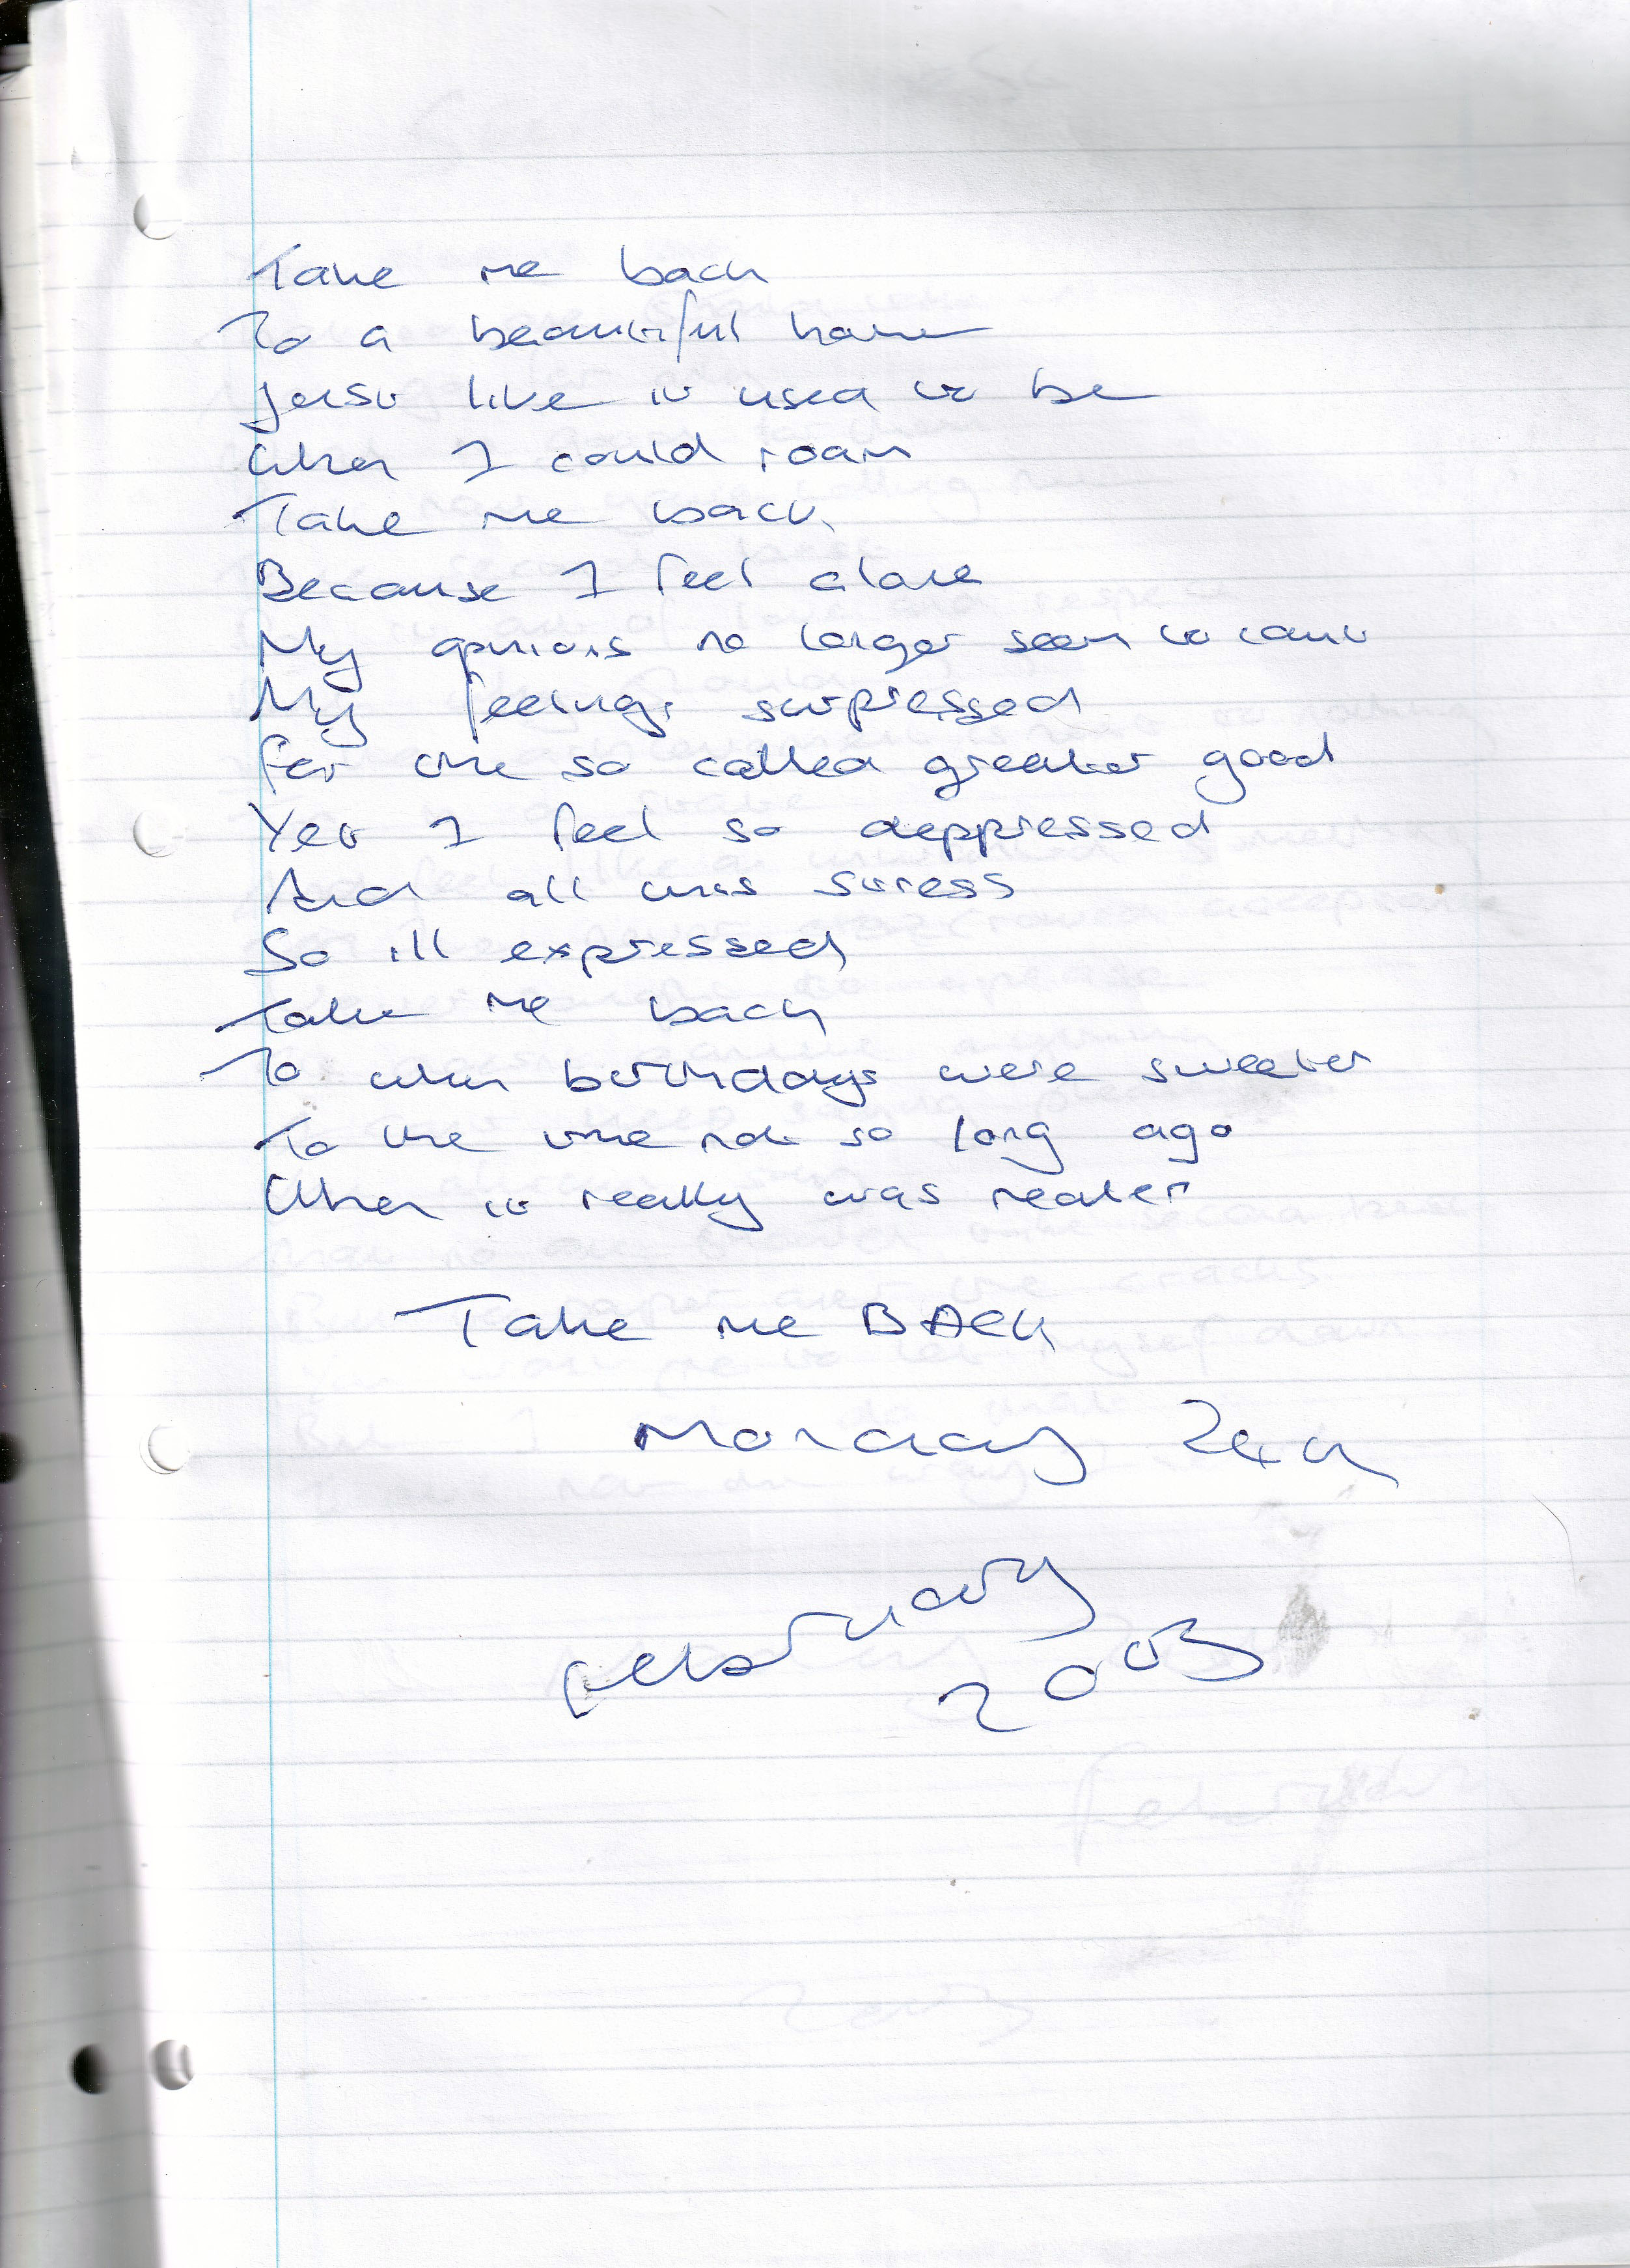 Take me back
To a beautiful home
Just like it used to be
When I could roam
Take me back
Because I feel alone
My opinions no longer seem to count
My feelings surpressed
For the so called greater good
Yet I feel so deppressed
And all this stress
So ill expressed
Take me back
To when birthdays were sweeter
To the time not so long ago
When it really was neater
Take me BACK
Monday 24th
February
2003